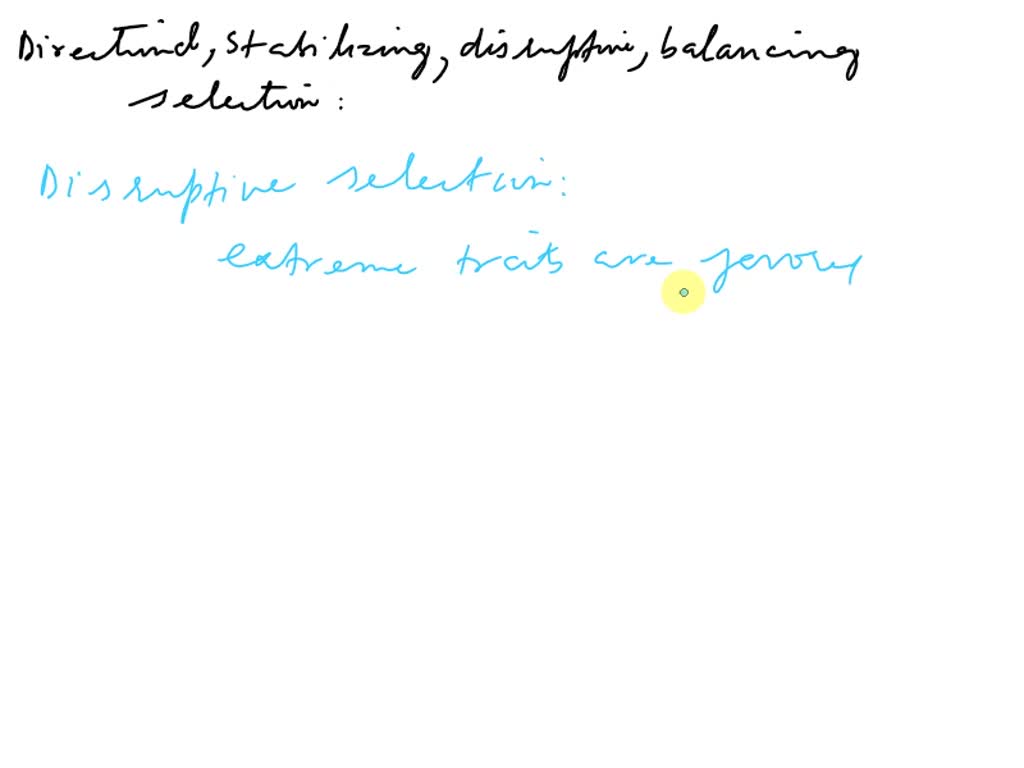 Directional, stabilizing, disruptive, balancing
selection:
Disruptive selection:
extreme traits are